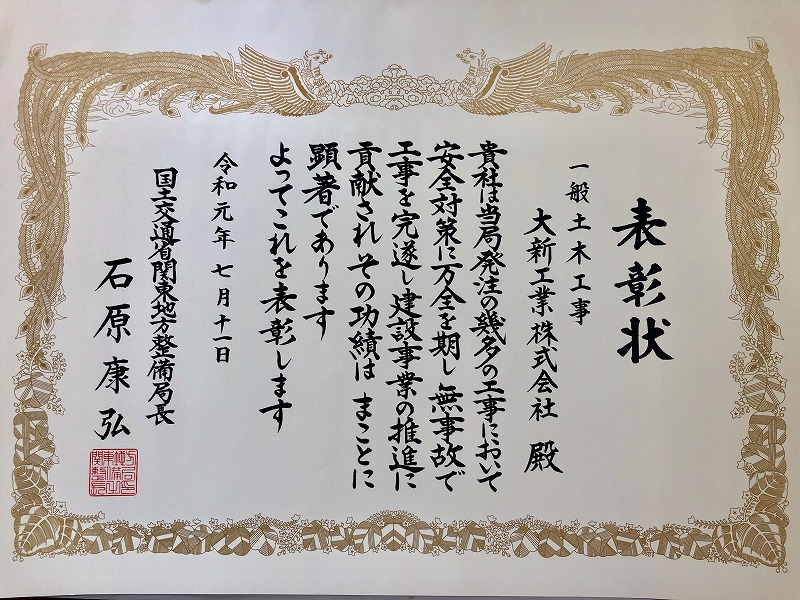 表彰状
一般土木工事
大新工業株式会社 殿
貴社は当局発注の幾多の工事において
安全対策に万全を期し無事故で
工事を完遂し建設事業の推進に
貢献されその功績は まことに
顕著であります
よってこれを表彰します
令和元年 七月十一日
国土交通省関東地方整備局長
石原康弘